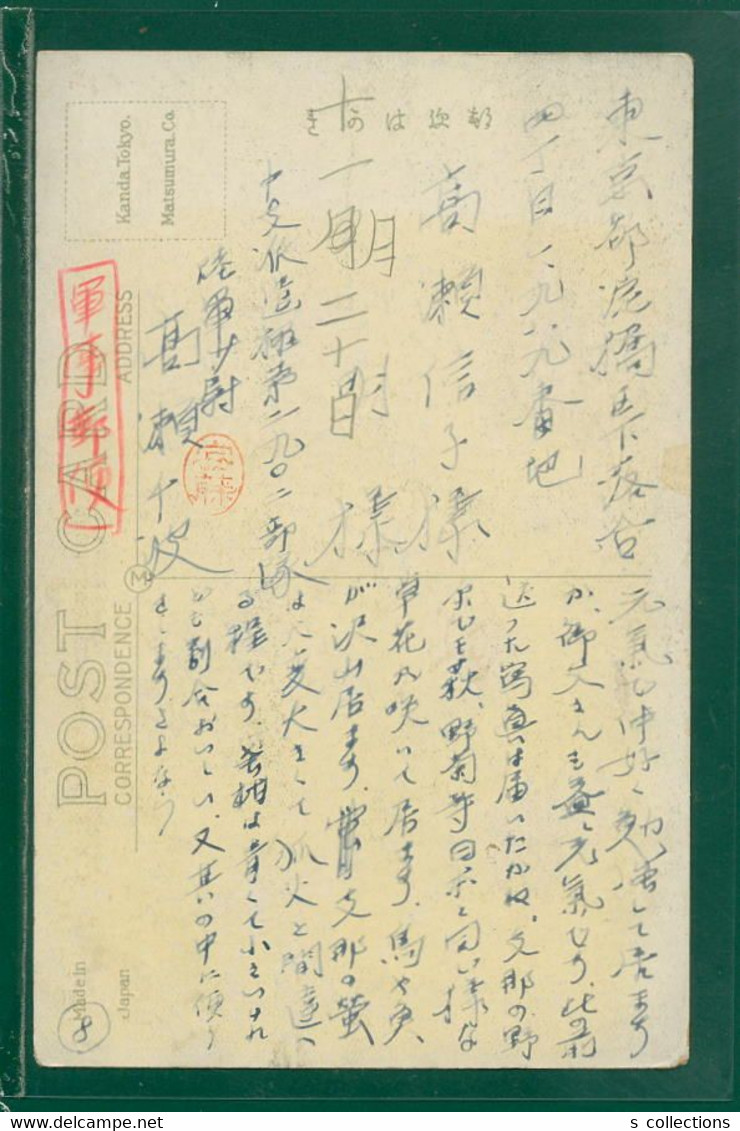 東京都淀橋区下落合
四丁目一九八九番地
高瀬信子様
様
十一月二十日
中支派遣 第二九〇二部隊
陸軍少尉
高瀬千波
軍事郵便
元気で仲好く勉強して居ますか
御父さんも益々元気です、此の前
送った写真は届いたかね、支那の野
原にも萩、野菊等日本と同じ様な
草花が咲いて居ます、馬や兵
が沢山居ます、支那の蛍
は大変大きくて狐火と間違へ
る程です、は青くて小さいけれ
ども割合おいしい、又其の中に便り
をします さよなら
きかは便郵
POST CARD
CORRESPONDENCE
ADDRESS
Kanda.Tokyo.
Matsumura.Co.
Made in
Japan
8
s collections